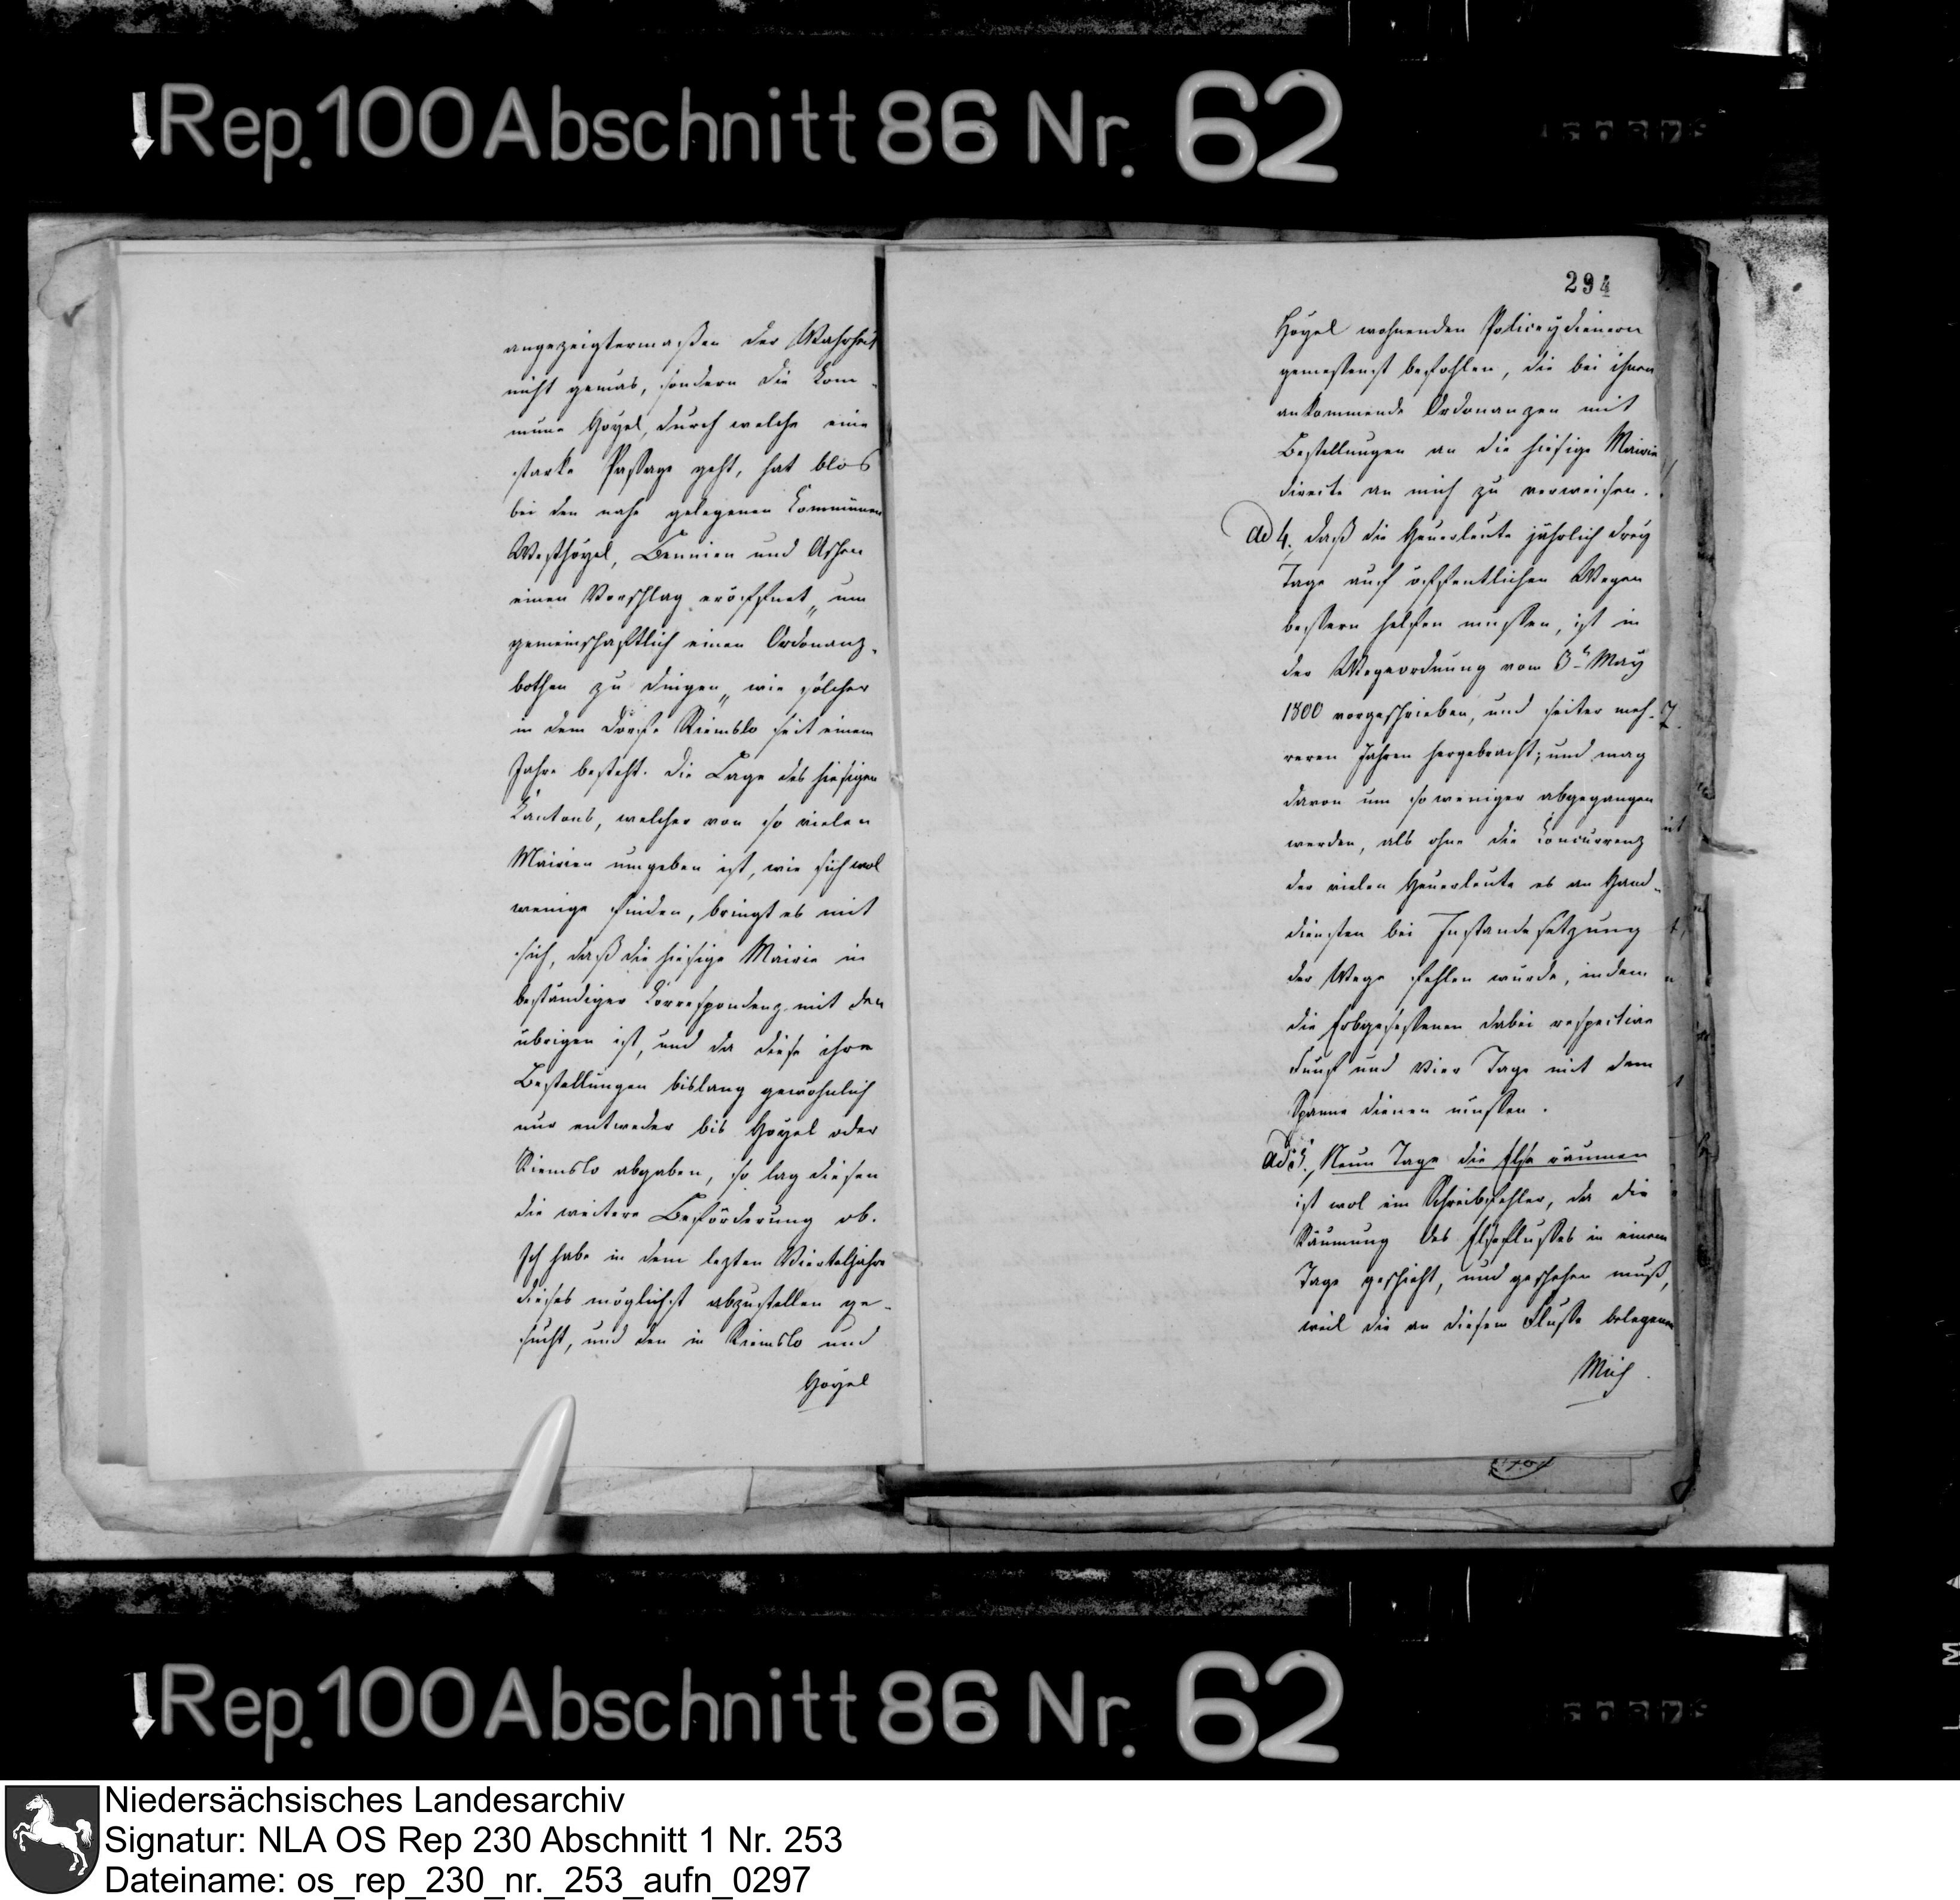 Rep. 100 Abschnitt 86 Nr. 62
angezeigtermaßen der Wahrheit
nicht gemäs, sondern die Kom-
mune Hoyel, durch welche eine
starke Passage geht, hat blos
bei den nahe gelegenen Communen
Westhoyel, Bennien und Aschen
einen Vorschlag eröffnet „um
gemeinschaftlich einen Ordonanz-
bothen zu dingen„ wie solcher
in dem Dorfe Riemslo seit einem
Jahre besteht. Die Lage des hiesigen
Cantons, welcher von so vielen
Mairien umgeben ist, wie sich wol
wenige finden, bringt es mit
sich, daß die hiesige Mairie in
beständiger Correspondenz mit den
übrigen ist, und da diese ihre
Bestellungen bislang gewöhnlich
nur entweder bis Hoyel oder
Riemslo abgaben, so lag diesen
die weitere Beförderung ob.
Ich habe in dem lezten Vierteljahre
dieses möglichst abzustellen ge-
sucht, und den in Riemslo und
Hoyel
294
Hoyel wohnenden Policeydienern
gemessenst befohlen, die bei ihnen
ankommende Ordonanzen mit
Bestellungen an die hiesige Mairie
directe an mich zu verweisen.
ad 4., daß die Heuerleute jährlich drey
Tage auf öffentlichen Wegen
bessern helfen mussen, ist in
der Wegeordnung vom 3t May
1800 vorgeschrieben, und seiter meh-
reren Jahren hergebracht; und mag
davon um so weniger abgegangen
werden, als ohne die Concurrenz
der vielen Heuerleute es an Hand-
diensten bei Instandesetzung
der Wege fehlen wurde, indem
die Erbgesessenen dabei respective
Funf und Vier Tage mit dem
Spann dienen mussen.
ad 5., Neun Tage die Else räumen
ist wol ein Schreibfehler, da die
Räumung des Elseflusses in einem
Tage geschieht, und geschehen muß,
weil die an diesem Flusse belegenen
Müh
Rep. 100 Abschnitt 86 Nr. 62
Niedersächsisches Landesarchiv
Signatur: NLA OS Rep 230 Abschnitt 1 Nr. 253
Dateiname: os_rep_230_nr._253_aufn_0297